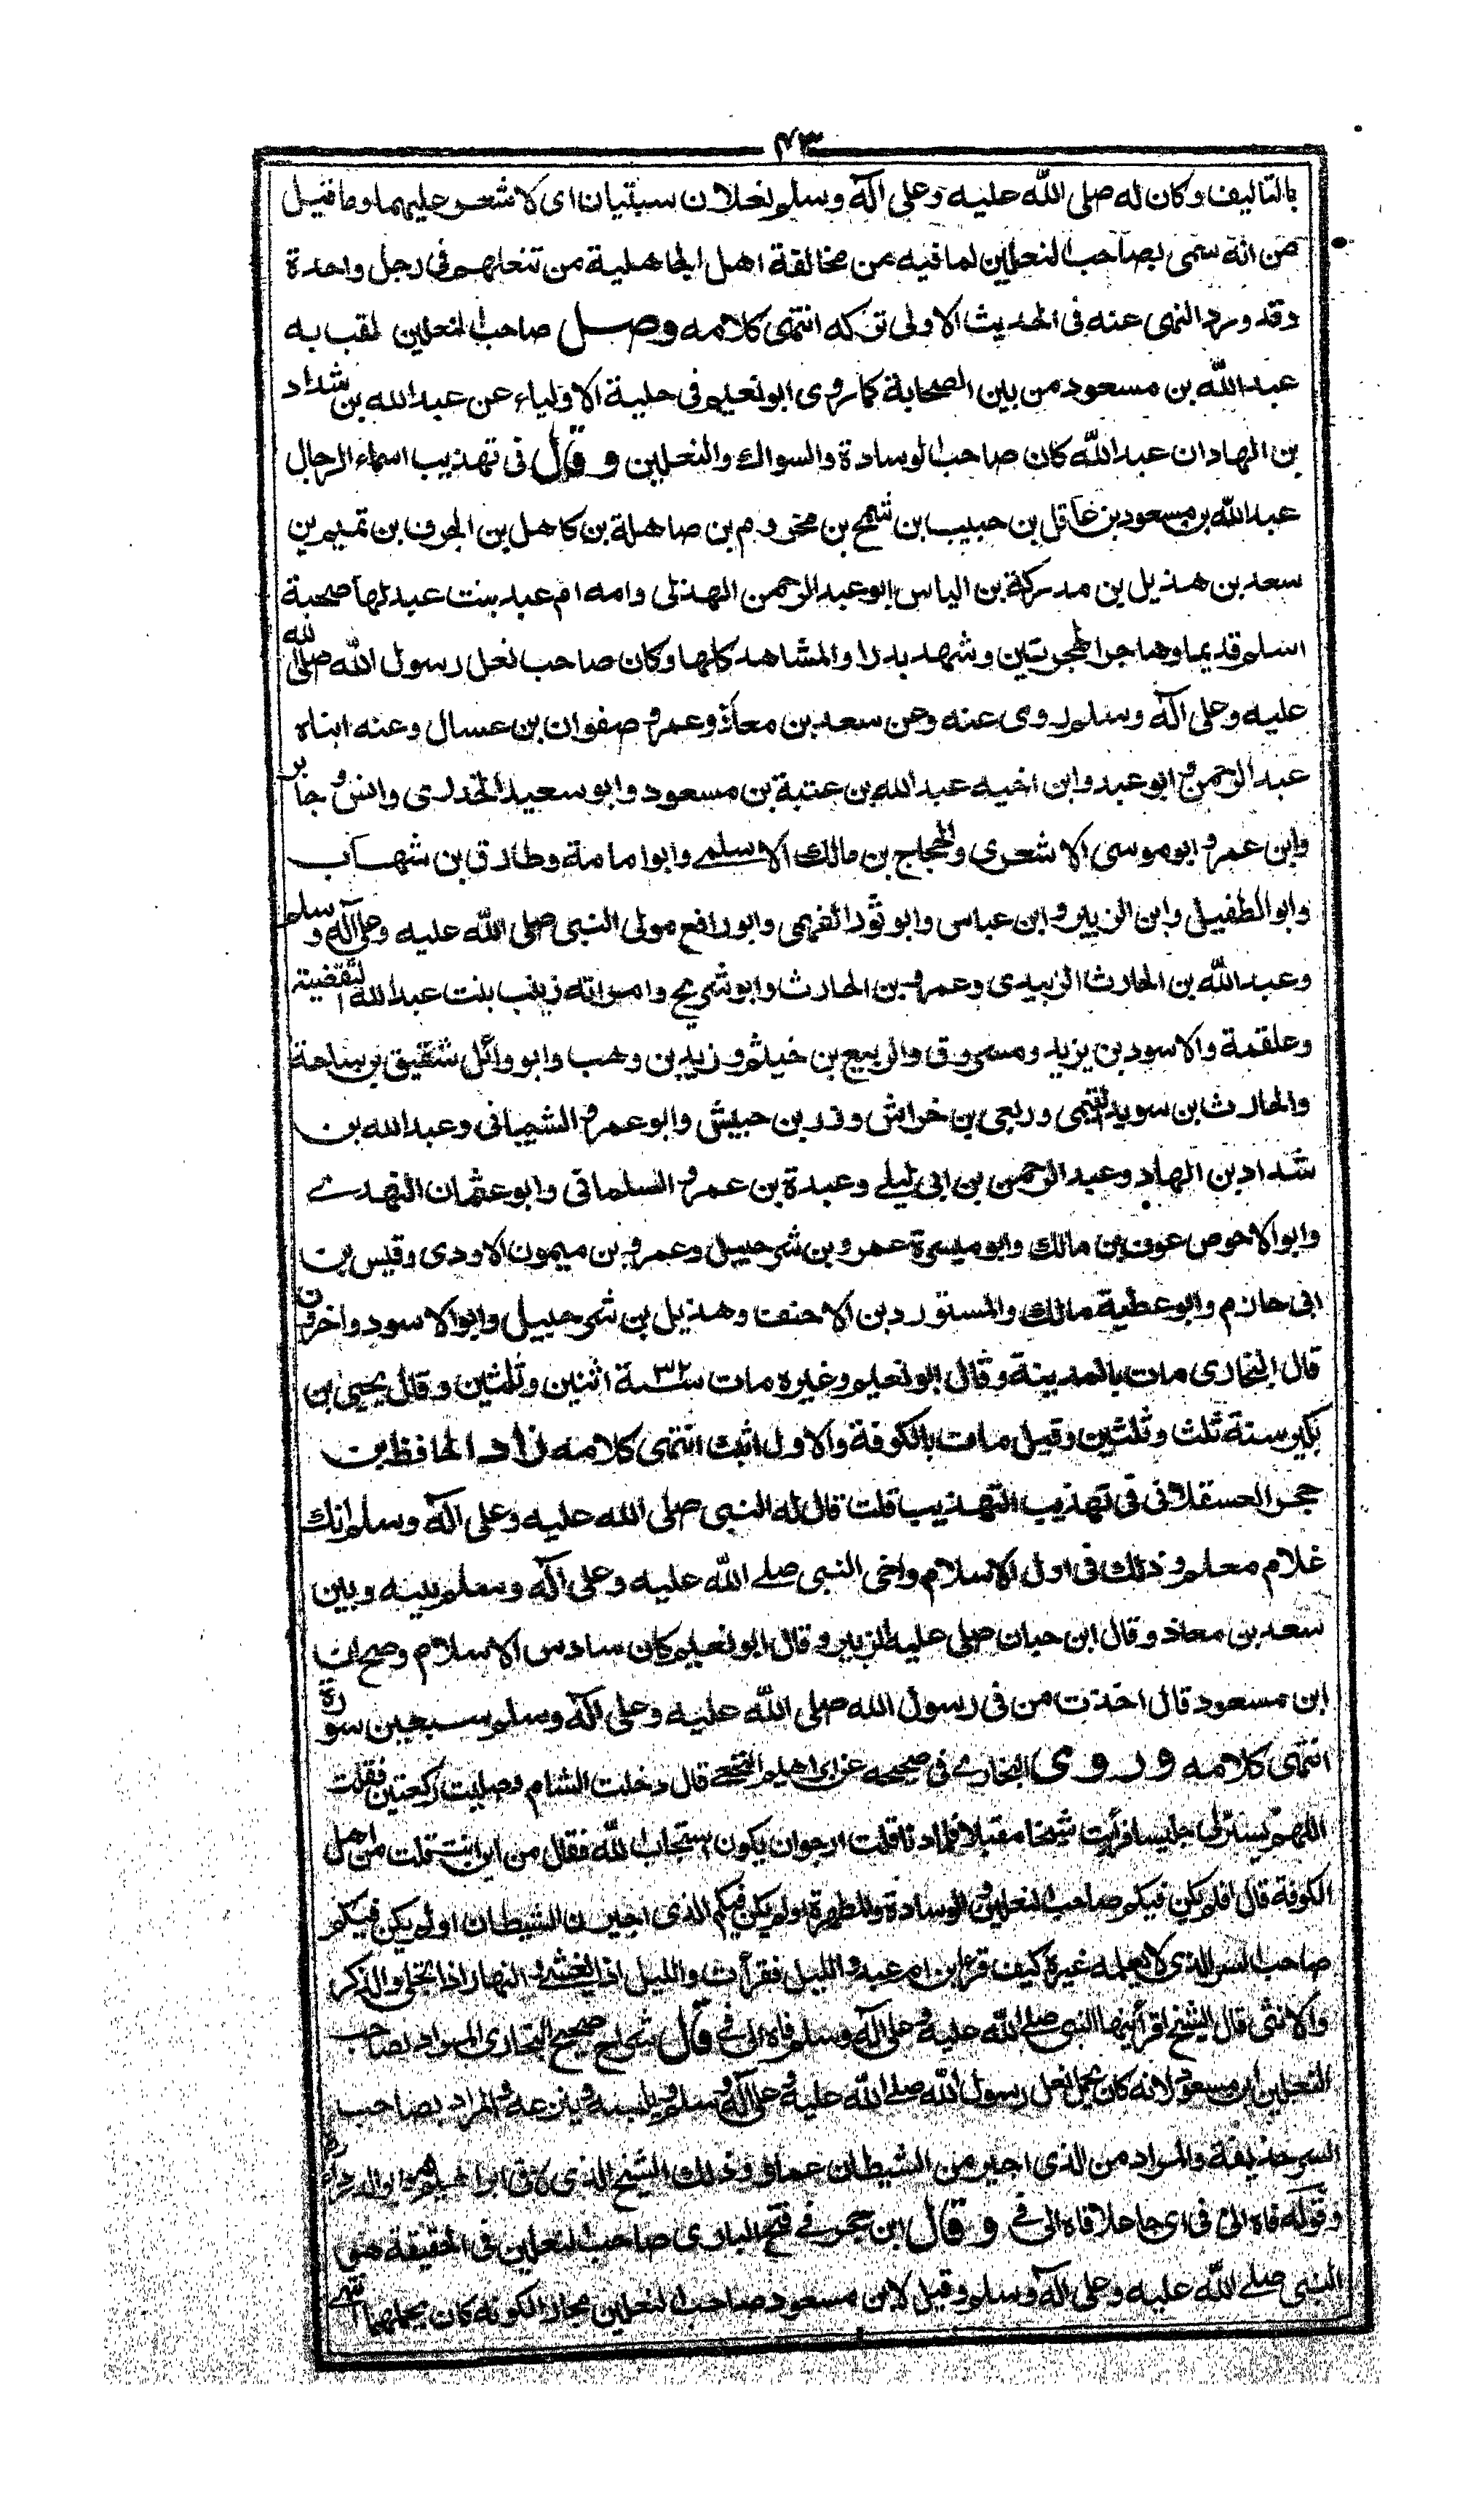 ٤٣
بالتاليف وكان له صلى الله عليه وعلى آله وسلم نعلان سبتيان اى لا شعر عليهما وما قيل
من انه سمى بصاحب النعلين لما فيه من مخالفة اهل الجاهلية من تنعلهم فى رجل واحدة
وقد ورد النهى عنه فى الحديث الاولى تركه انتهى كلامه وصل صاحب النعلين لقب به
عبد الله بن مسعود من بين الصحابة كما روى ابو نعيم فى حلية الاولياء عن عبد الله بن شداد
بن الهاد ان عبد الله كان صاحب الوسادة والسواك والنعلين وقال فى تهذيب اسماء الرجال
عبد الله بن مسعود بن غافل بن حبيب بن شمخ بن مخزوم بن صاهلة بن كاهل بن الحرث بن تميم بن
سعد بن هذيل بن مدركة بن الياس ابو عبد الرحمن الهذلى وامه ام عبد بنت عبد لها صحبة
اسلم قديما وهاجر الهجرتين وشهد بدرا والمشاهد كلها وكان صاحب نعل رسول الله صلى الله
عليه وعلى آله وسلم روى عنه وعن سعد بن معاذ وعمر و صفوان بن عسال وعنه ابناه
عبد الرحمن و ابو عبد وابن اخيه عبد الله بن عتبة بن مسعود وابو سعيد الخدرى وانس و جابر
وابن عمر و ابو موسى الاشعرى والحجاج بن مالك الاسلمے وابو امامة وطارق بن شهاب
وابو الطفيل وابن الزبير وابن عباس وابو ثور الفهمى وابو رافع مولى النبى صلى الله عليه وعلى آله وسلم
وعبد الله بن الحارث الزبيدى وعمرو بن الحارث وابو شريح وامراته زينب بنت عبد الله الثقفية
وعلقمة والاسود بن يزيد ومسروق والربيع بن خيثم و زيد بن وهب وابو وائل شقيق بن سلمة
والحارث بن سويد التيمى وربعى بن خراش وزر بن حبيش وابو عمرو الشيبانى وعبد الله بن
شداد بن الهاد وعبد الرحمن بن ابى ليلے وعبدة بن عمرو السلمانى وابو عثمان النهدے
وابو الاحوص عوف بن مالك وابو ميسرة عمرو بن شرحبيل وعمرو بن ميمون الاودى وقيس بن
ابى حازم وابو عطية مالك والمستورد بن الاحنف وهذيل بن شرحبيل وابو الاسود واخرون
قال البخارى مات بالمدينة وقال ابو نعيم وغيره مات سنة ٣٢ اثنين وثلثين وقال يحيى بن
بكير سنة ثلث وثلثين وقيل مات بالكوفة والاول اثبت انتهى كلامه زاد الحافظ بن
حجر العسقلانى فى تهذيب التهذيب قلت قال له النبى صلى الله عليه وعلى آله وسلم انك
غلام معلم و ذلك فى اول الاسلام واخى النبى صلے الله عليه وعلى آله وسلم بينه وبين
سعد بن معاذ وقال ابن حبان صلى عليه الزبير وقال ابو نعيم كان سادس الاسلام وصح ان
ابن مسعود قال اخذت من فى رسول الله صلى الله عليه وعلى آله وسلم سبعين سورة
انتهى كلامه وروى البخارے فى صحيحه عن ابراهيم النخعے قال دخلت الشام فصليت ركعتين فقلت
اللهم يسر لى جليسا فرأيت شيخا مقبلا فلما دنا قلت ارجو ان يكون استجاب الله فقال من اين انت قلت من اهل
الكوفة قال افلم يكن فيكم صاحب النعلين و الوسادة والمطهرة اولم يكن فيكم الذى اجير من الشيطان اولم يكن فيكم
صاحب السر الذى لا يعلمه غيره كيف قرء ابن ام عبد والليل فقرأت والليل اذا يغشے و النهار اذا تجلى والذكر
والانثى قال الشيخ اقرأنيها النبى صلے الله عليه وعلى آله وسلم فاه الى فے قال شراح صحيح البخارى المراد بصاحب
النعلين ابن مسعود لانه كان يحمل نعل رسول الله صلے الله عليه و على آله وسلم و يلبسه و ينزعه و المراد بصاحب
السر حذيفة والمراد من الذى اجير من الشيطان عمار و ذلك الشيخ الذى لاقى ابراهيم هو ابو الدرداء
وقوله فاه الى فى اى جاعلا فاه الى فے وقال ابن حجر فے فتح البارى صاحب النعلين فى الحقيقة هو
النبى صلے الله عليه وعلى آله وسلم وقيل لابن مسعود صاحب النعلين مجاز الكونه كان يحملهما انتهے